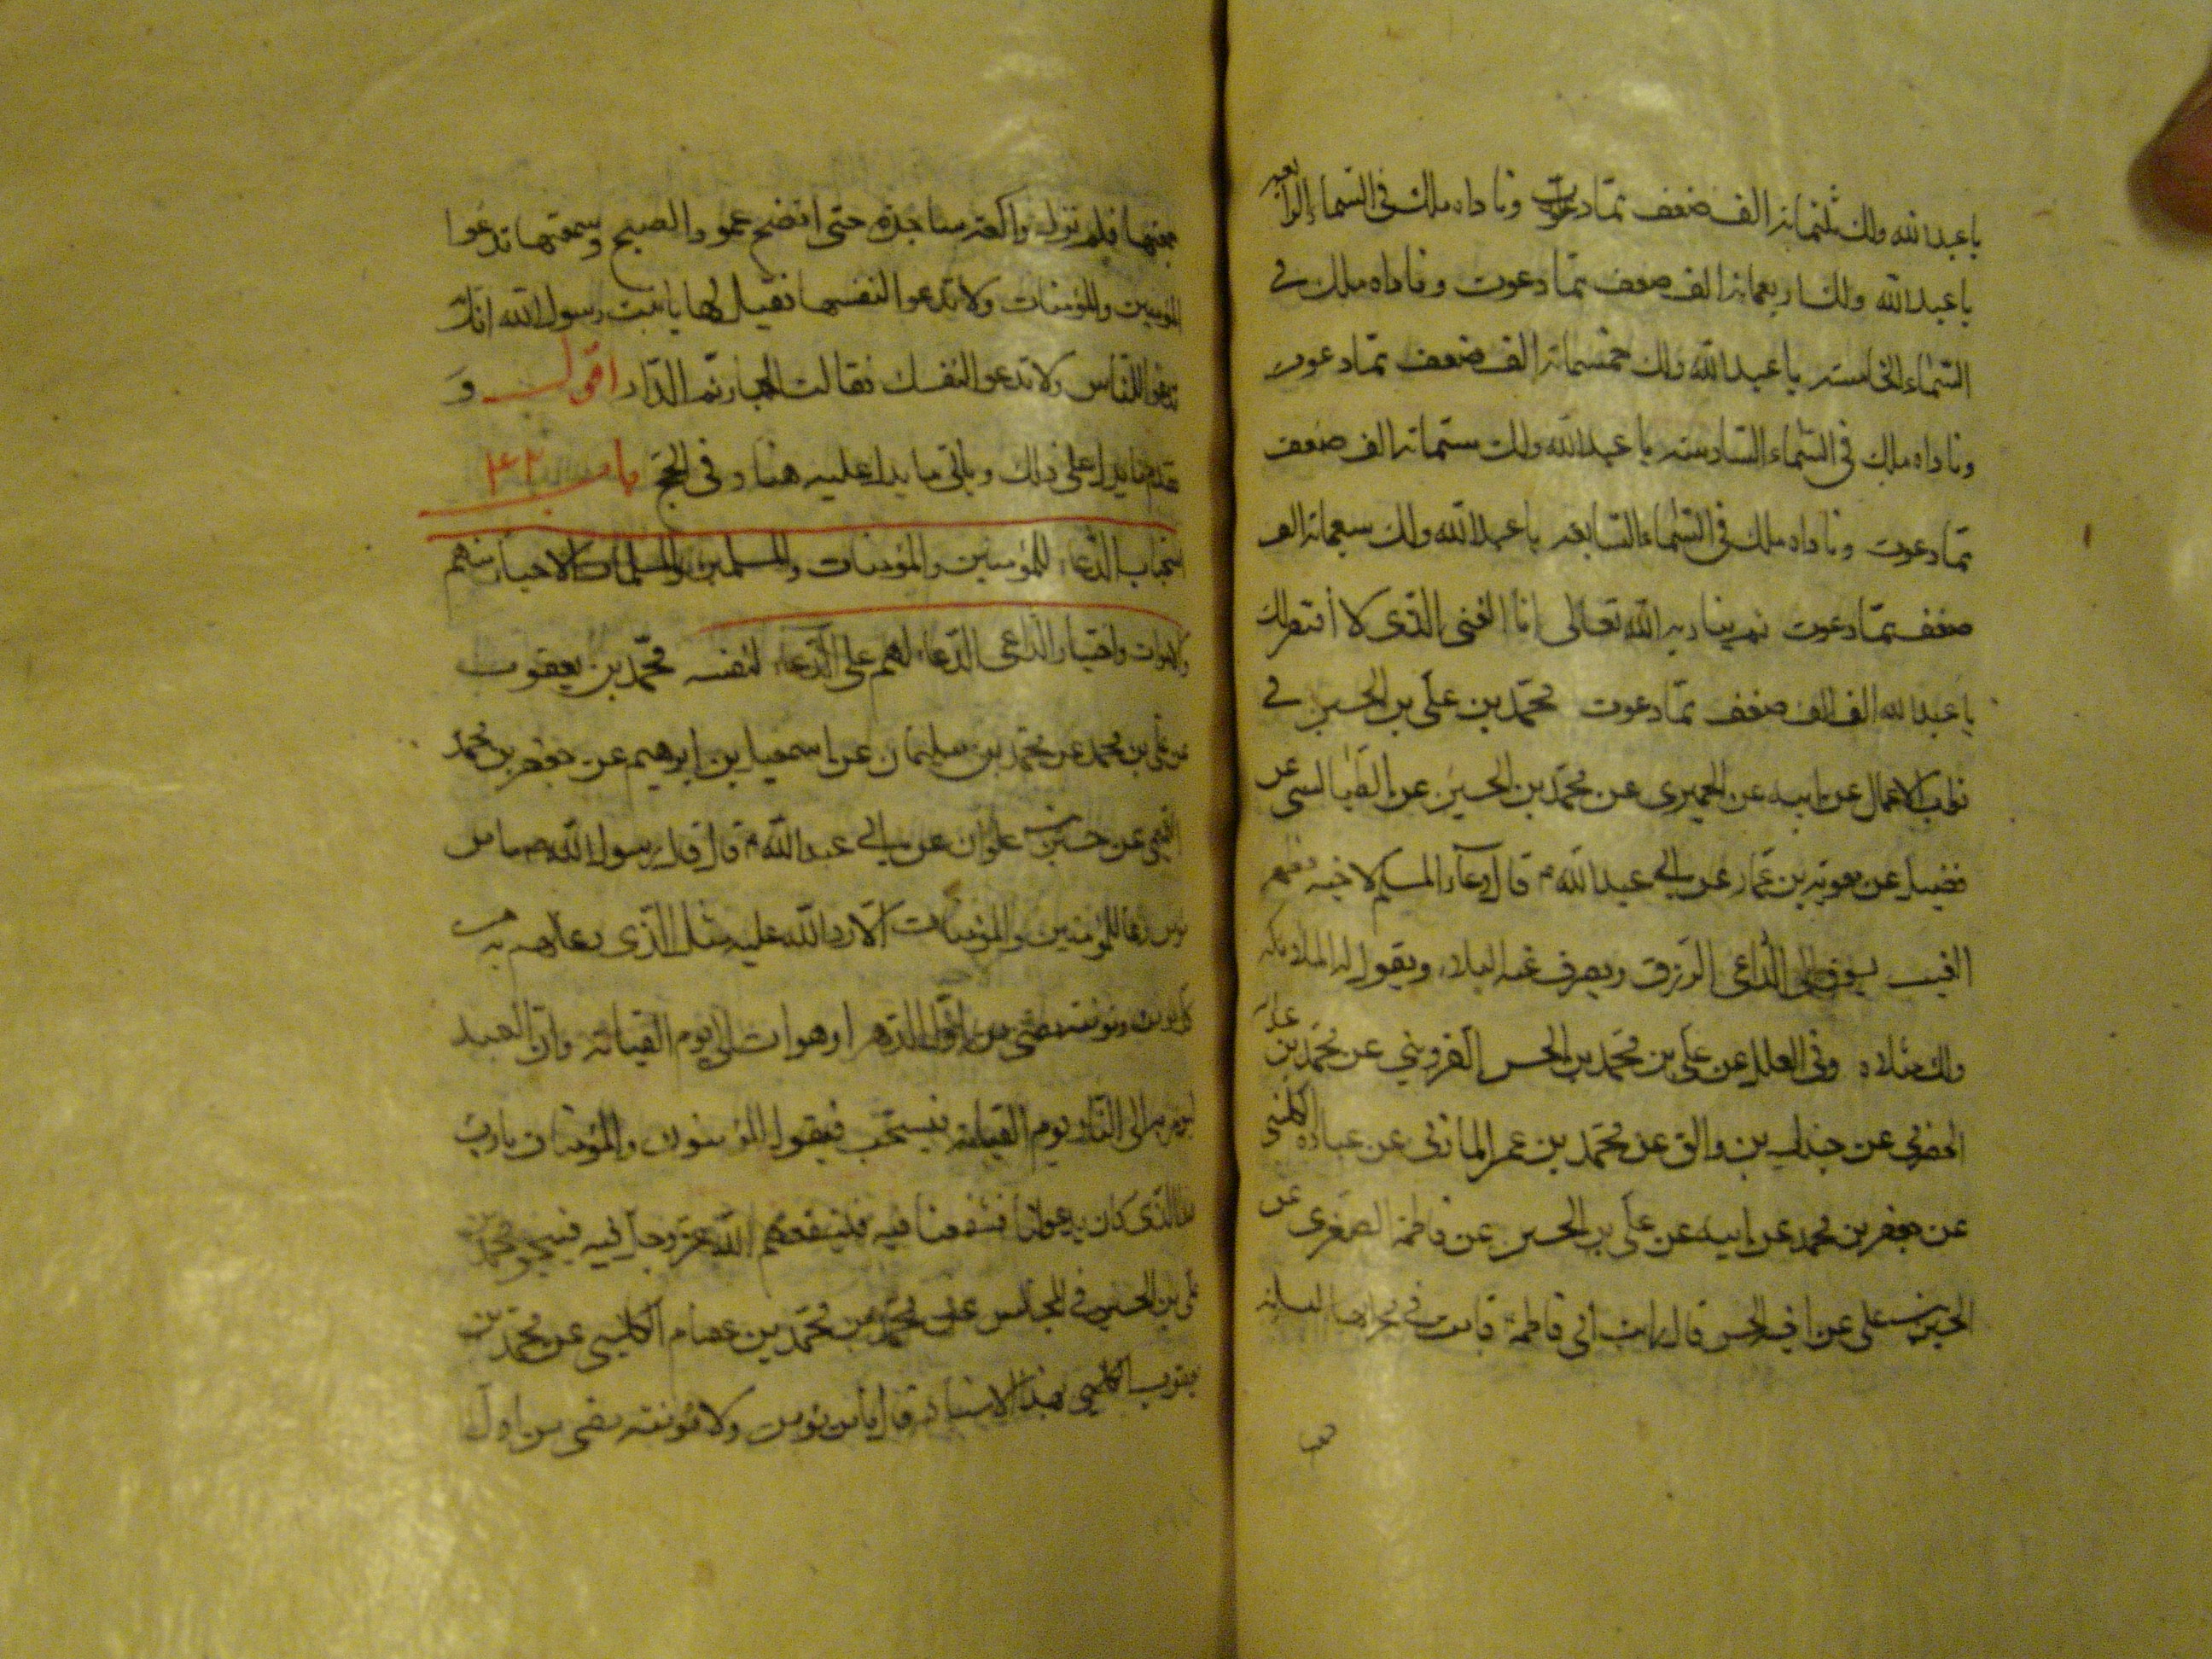 يا عبد الله ولك ثلثمائة الف ضعف مما دعوت وناداه ملك في السماء الرابعة
يا عبد الله ولك اربعمائة الف ضعف مما دعوت وناداه ملك في
السماء الخامسة يا عبد الله ولك خمسمائة الف ضعف مما دعوت
وناداه ملك في السماء السادسة يا عبد الله ولك ستمائة الف ضعف
مما دعوت وناداه ملك في السماء السابعة يا عبد الله ولك سبعمائة الف
ضعف مما دعوت ثم يناديه الله تعالى انا الغنى الذى لا أفتقر لك
يا عبد الله الف الف ضعف مما دعوت محمد بن على بن الحسين في
ثواب الاعمال عن ابيه عن الحميرى عن محمد بن الحسين عن الطيالسى عن
فضيل عن معوية بن عمار عن ابي عبد الله ع قال دعاء المسلم لاخيه بظهر
الغيب يسوق الى الداعى الرزق ويصرف عنه البلاء ويقول له الملائكة
ولك مثلاه وفى العلل عن على بن محمد بن الحسن القزويني عن محمد بن عبد الله
الحضرمي عن جندل بن والق عن محمد بن عمر المازنى عن عبادة الكلبى
عن جعفر بن محمد عن ابيه عن على بن الحسين عن فاطمة الصغرى عن
الحسين بن على عن اخيه الحسن قال رايت امى فاطمة ع قامت في محرابها ليلة
جمعتها فلم تزل راكعة ساجدة حتى اتضح عمود الصبح وسمعتها تدعوا
للمؤمنين والمؤمنات ولا تدعوا لنفسها فقيل لها يا بنت رسول الله انك
تدعوا للناس ولا تدعو لنفسك فقالت الجار ثم الدار اقول و
تقدم ما يدل على ذلك وياتى ما يدل عليه هنا وفى الحج باب ٤٢
استحباب الدعاء للمؤمنين والمؤمنات والمسلمين والمسلمات الاحياء منهم
والاموات واختيار الداعى الدعاء لهم على الدعاء لنفسه محمد بن يعقوب
عن على بن محمد عن محمد بن سليمان عن اسمعيل بن ابرهيم عن جعفر بن محمد
التميمى عن حسين بن علوان عن ابي عبد الله ع قال قال رسول الله ص ما من
مؤمن دعا للمؤمنين والمؤمنات الا رد الله عليه مثل الذى دعا لهم به من
كل مؤمن ومؤمنة مضى من اول الدهر او هو ات الى يوم القيامة وان العبد
ليؤمر به الى النار يوم القيامة فيسحب فيقول المؤمنون والمؤمنات يا رب
هذا الذى كان يدعو لنا فشفعنا فيه فيشفعهم الله عز وجل فيه فينجو محمد بن
على بن الحسين في المجالس عن محمد بن محمد بن عصام الكلينى عن محمد بن
يعقوب الكليني بهذا الاسناد قال ما من مؤمن ولا مؤمنة مضى من اول